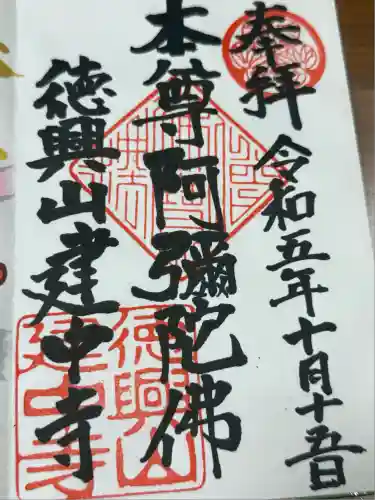 奉拝
令和五年十月十五日
本尊阿彌陀佛
徳興山建中寺
徳興山
建中寺